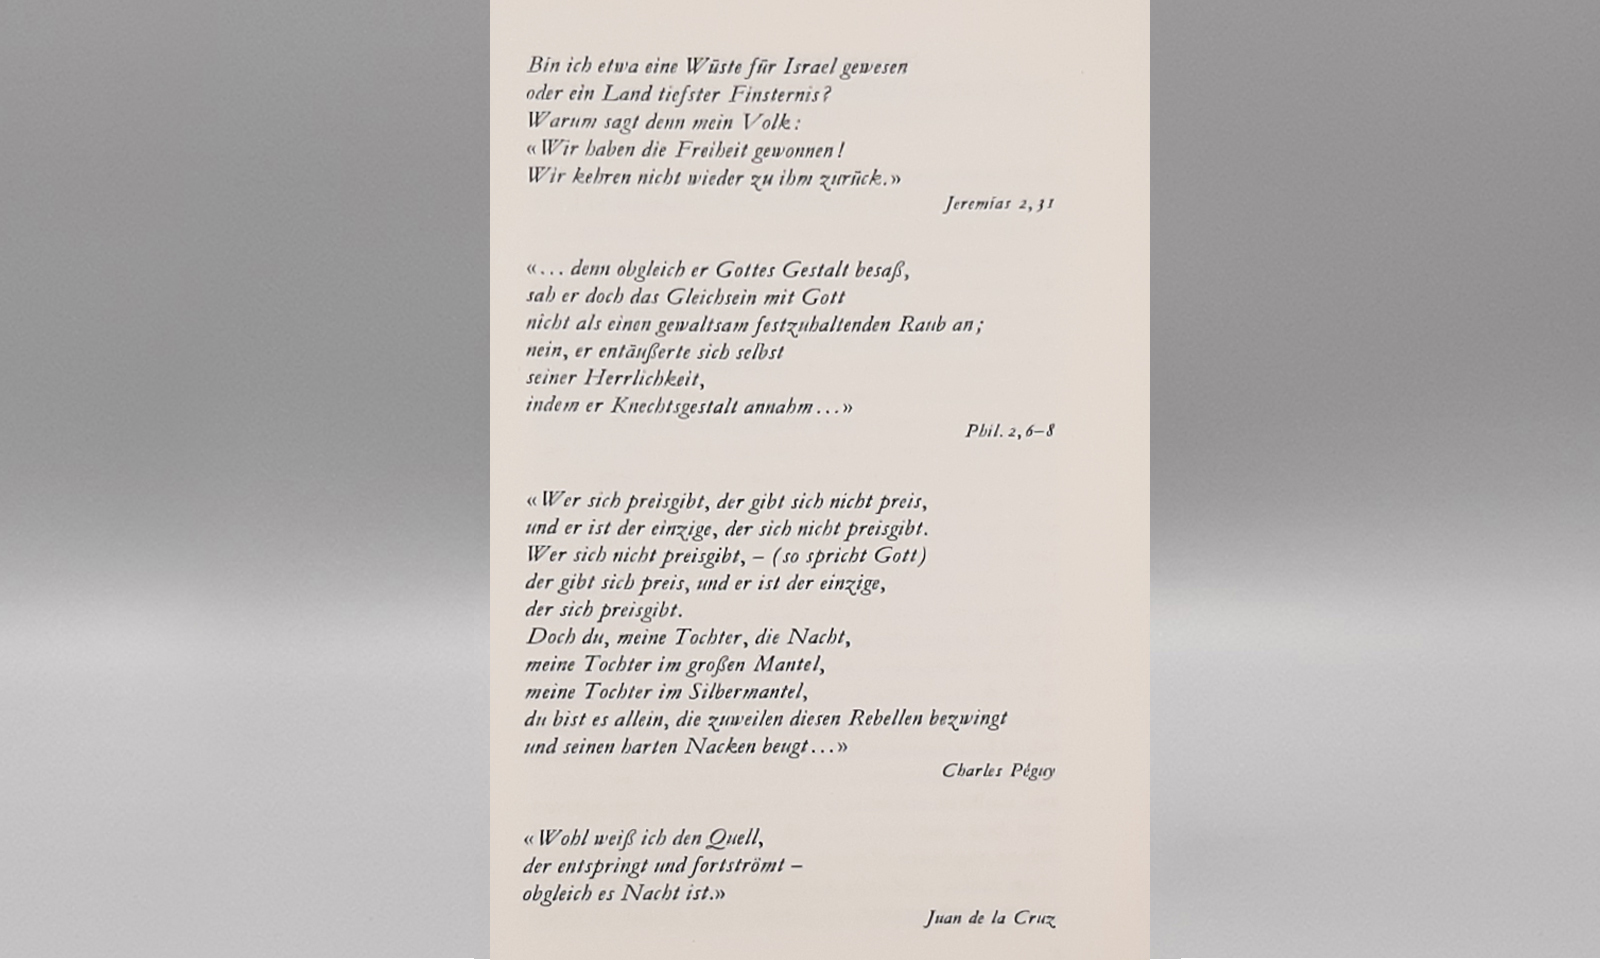 Bin ich etwa eine Wüste für Israel gewesen
oder ein Land tiefster Finsternis?
Warum sagt denn mein Volk:
«Wir haben die Freiheit gewonnen!
Wir kehren nicht wieder zu ihm zurück.»
Jeremias 2,31
«... denn obgleich er Gottes Gestalt besaß,
sah er doch das Gleichsein mit Gott
nicht als einen gewaltsam festzuhaltenden Raub an;
nein, er entäußerte sich selbst
seiner Herrlichkeit,
indem er Knechtsgestalt annahm...»
Phil. 2,6–8
«Wer sich preisgibt, der gibt sich nicht preis,
und er ist der einzige, der sich nicht preisgibt.
Wer sich nicht preisgibt, – (so spricht Gott)
der gibt sich preis, und er ist der einzige,
der sich preisgibt.
Doch du, meine Tochter, die Nacht,
meine Tochter im großen Mantel,
meine Tochter im Silbermantel,
du bist es allein, die zuweilen diesen Rebellen bezwingt
und seinen harten Nacken beugt...»
Charles Péguy
«Wohl weiß ich den Quell,
der entspringt und fortströmt –
obgleich es Nacht ist.»
Juan de la Cruz